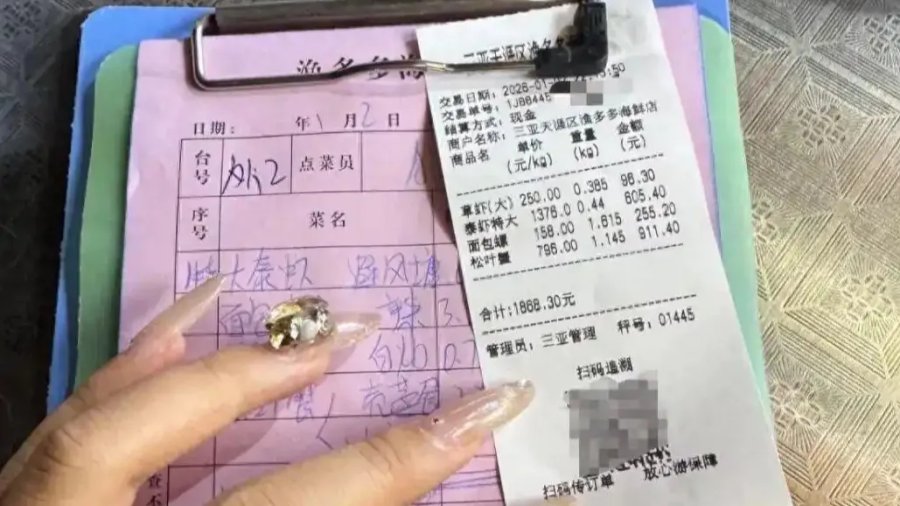 渔多多海
日期： 年1月2日
台号 外12 点菜员
序号 菜名
特大泰虾 避风塘
面包
白灼 0.7
三亚天涯区渔多多
交易日期: 2026-01
交易单号: 1JB8445
结算方式: 现金
商户名称: 三亚天涯区渔多多海鲜店
商品名 单价 重量 金额
(元/kg) (kg) (元)
草虾(大) 250.00 0.385 96.30
泰虾特大 1376.0 0.44 605.40
面包螺 158.00 1.615 255.20
松叶蟹 796.00 1.145 911.40
合计:1868.30元
管理员: 三亚管理 秤号: 01445
扫码追溯
扫码传订单 放心游保障